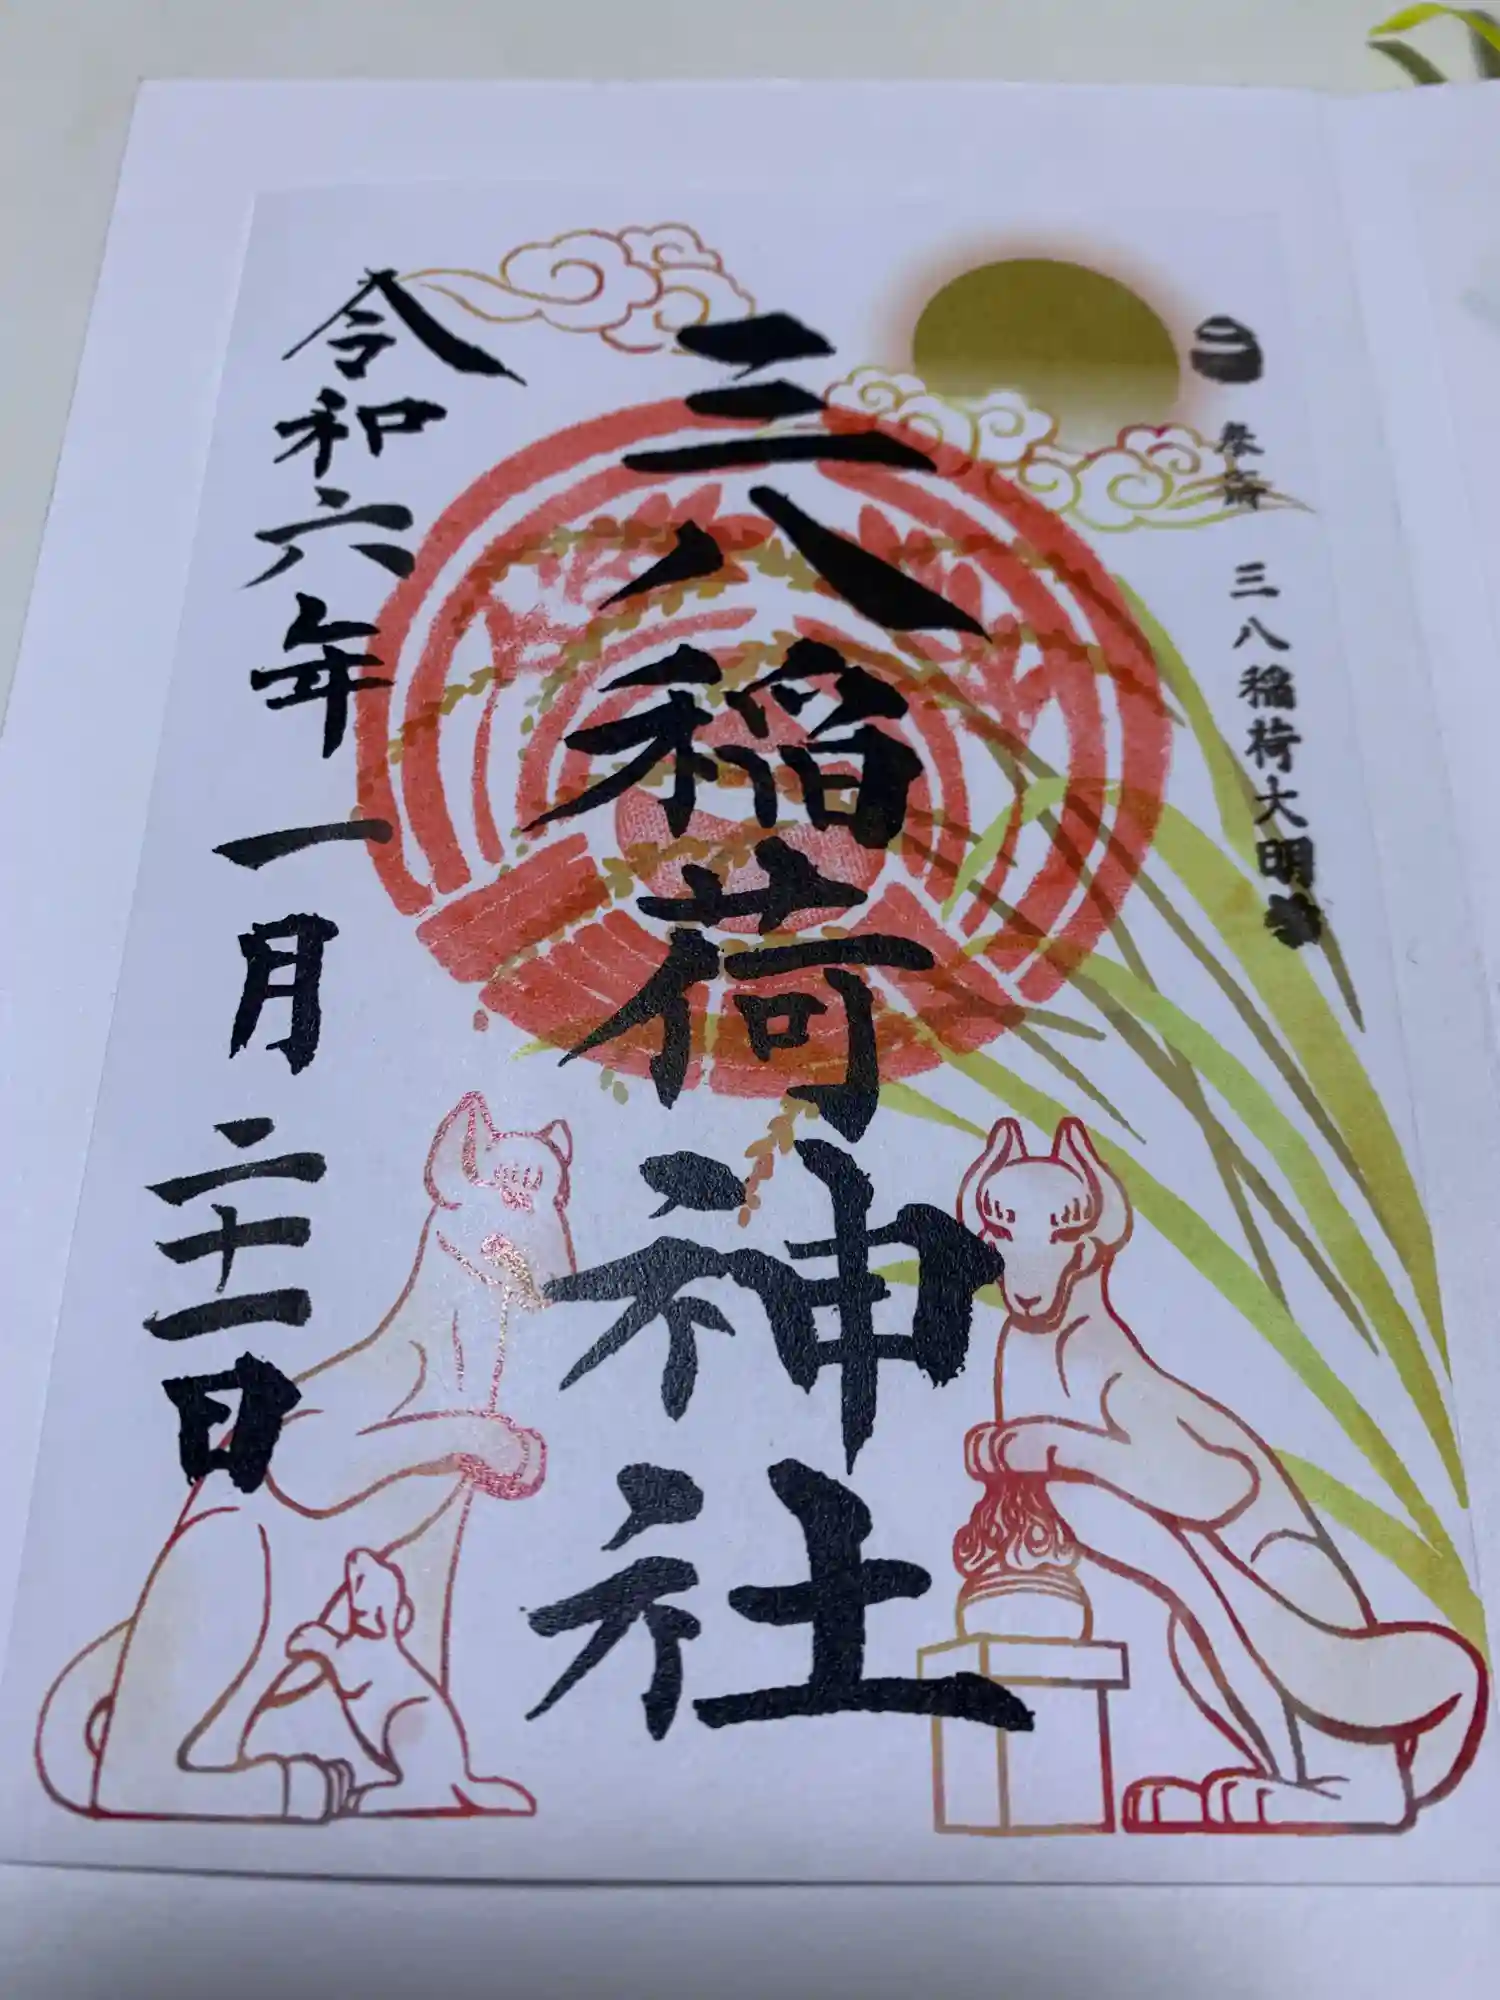 奉斎 三八稲荷大明神
三八稲荷神社
令和六年一月二十一日